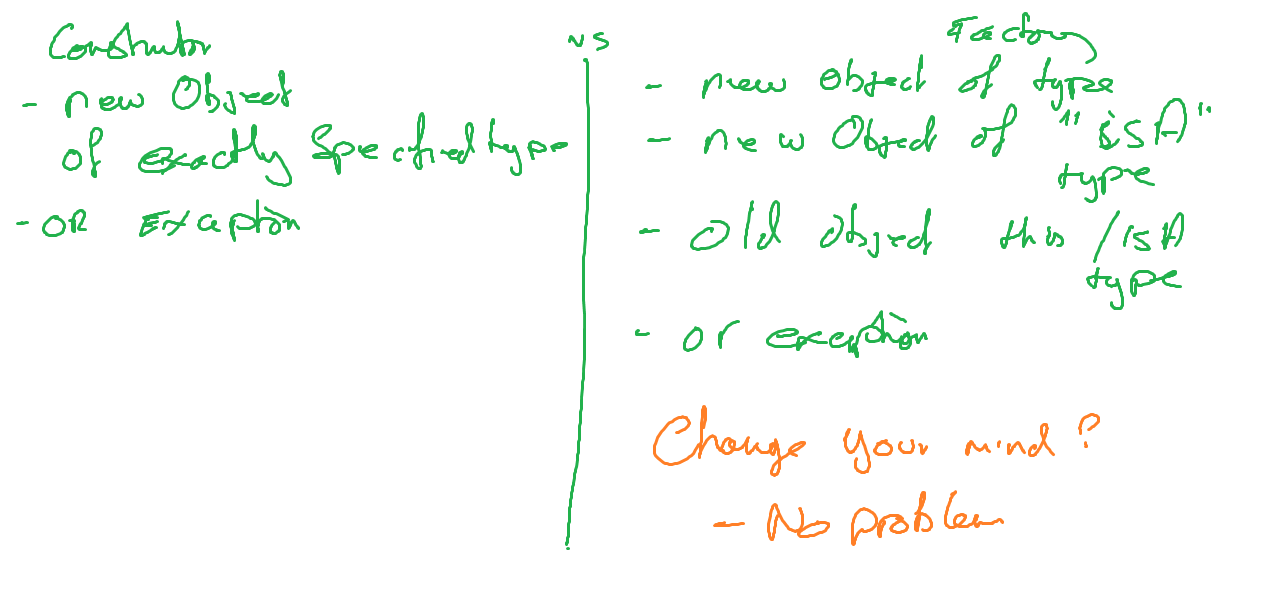 Constructor
- new Object
of exactly Specified type
- OR Exception
VS
Factory
- new object of type
- new Object of "isA"
type
- old object this / isA
type
- or exception
Change your mind?
- No problem